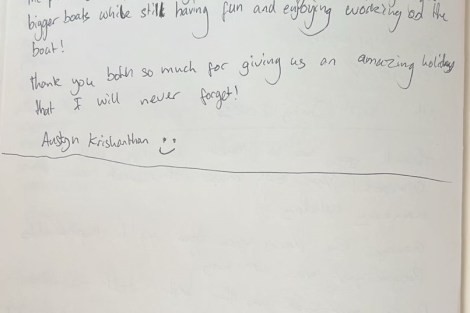 bigger boats while still having fun and enjoying working on the
boat!
thank you both so much for giving us an amazing holiday
that I will never forget!
Austyn Krishanthan :)